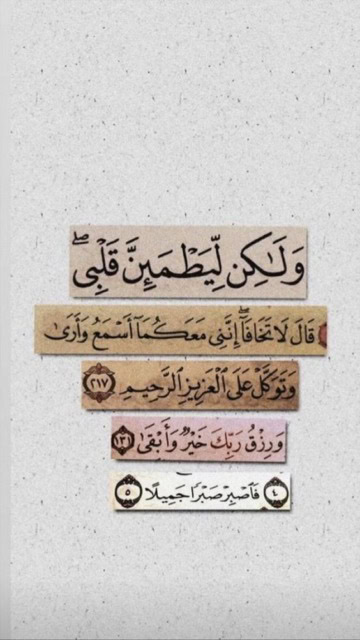 وَلَٰكِن لِّيَطْمَئِنَّ قَلْبِى ۖ
قَالَ لَا تَخَافَا ۖ إِنَّنِى مَعَكُمَآ أَسْمَعُ وَأَرَىٰ
وَتَوَكَّلْ عَلَى ٱلْعَزِيزِ ٱلرَّحِيمِ ٢١٧
وَرِزْقُ رَبِّكَ خَيْرٌ وَأَبْقَىٰ ١٣١
٤ فَٱصْبِرْ صَبْرًا جَمِيلًا ٥